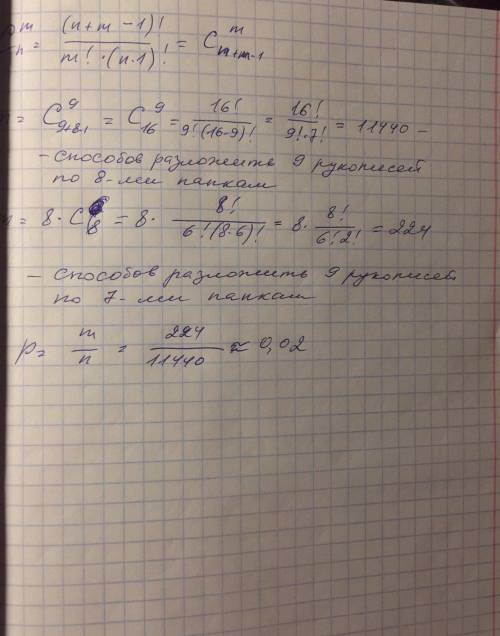 m/n = (n+m-1)! / m!·(n-1)! = C^m_{n+m-1}
= C^9_{9+8-1} = C^9_{16} = 16! / 9!(16-9)! = 16! / 9!·7! = 11440 -
- способов разложить 9 рукописей
по 8-ми папкам
= 8· C^6_8 = 8· 8! / 6!(8-6)! = 8· 8! / 6!2! = 224
- способов разложить 9 рукописей
по 7-ми папкам
p= m/n = 224/11440 ≈ 0,02